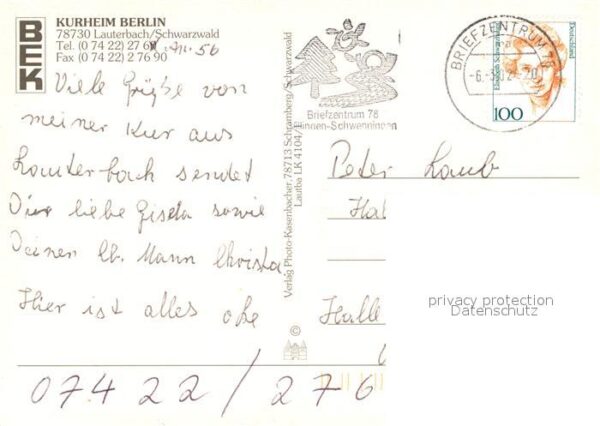 BEK
KURHEIM BERLIN
78730 Lauterbach/Schwarzwald
Tel. (0 74 22) 27 6
Fax (0 74 22) 2 76 90
Viele Grüße von
meiner Kur aus
Lauterbach sendet
Dir liebe Gisela sowie
Deinen lb. Mann Christa.
Hier ist alles oke
07422/276
Verlag Photo-Kasenbacher 78713 Schramberg/Schwarzwald
Lautba LK 4104/
©
Briefzentrum 78
Villingen-Schwenningen
BRIEFZENTRUM 78
100
Deutschland
Elisabeth Schwarzhaupt
Peter Laub
Halle
privacy protection
Datenschutz